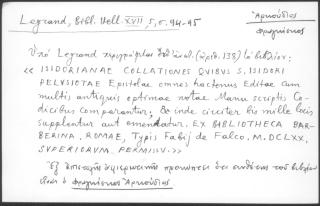 Legrand, Bibl. Hell. XVII, 5, σ. 94-95
Ἀρκούδιος
φραγκίσκος
Ὑπὸ Legrand περιγράφεται (ἀριθ. 138) τὸ βιβλίον:
« ISIDORIANAE COLLATIONES QVIBVS S. ISIDORI
PELVSIOTAE Epistolae omnes hactenus Editae cum
multis antiquis optimae notae Manu scriptis Co-
dicibus comparantur; & inde circiter bis mille locis
supplentur aut emendatur. EX BIBLIOTHECA BAR-
BERINA. ROMAE, Typis Fabij de Falco. M.DCLXX.
SVPERIORVM. PERMISSV. »
Ἐξ ἐπιστολῆς ἀφιερωτικῆς προκύπτει ὅτι συνθέτης τοῦ βιβλίου
εἶναι ὁ φραγκίσκος Ἀρκούδιος